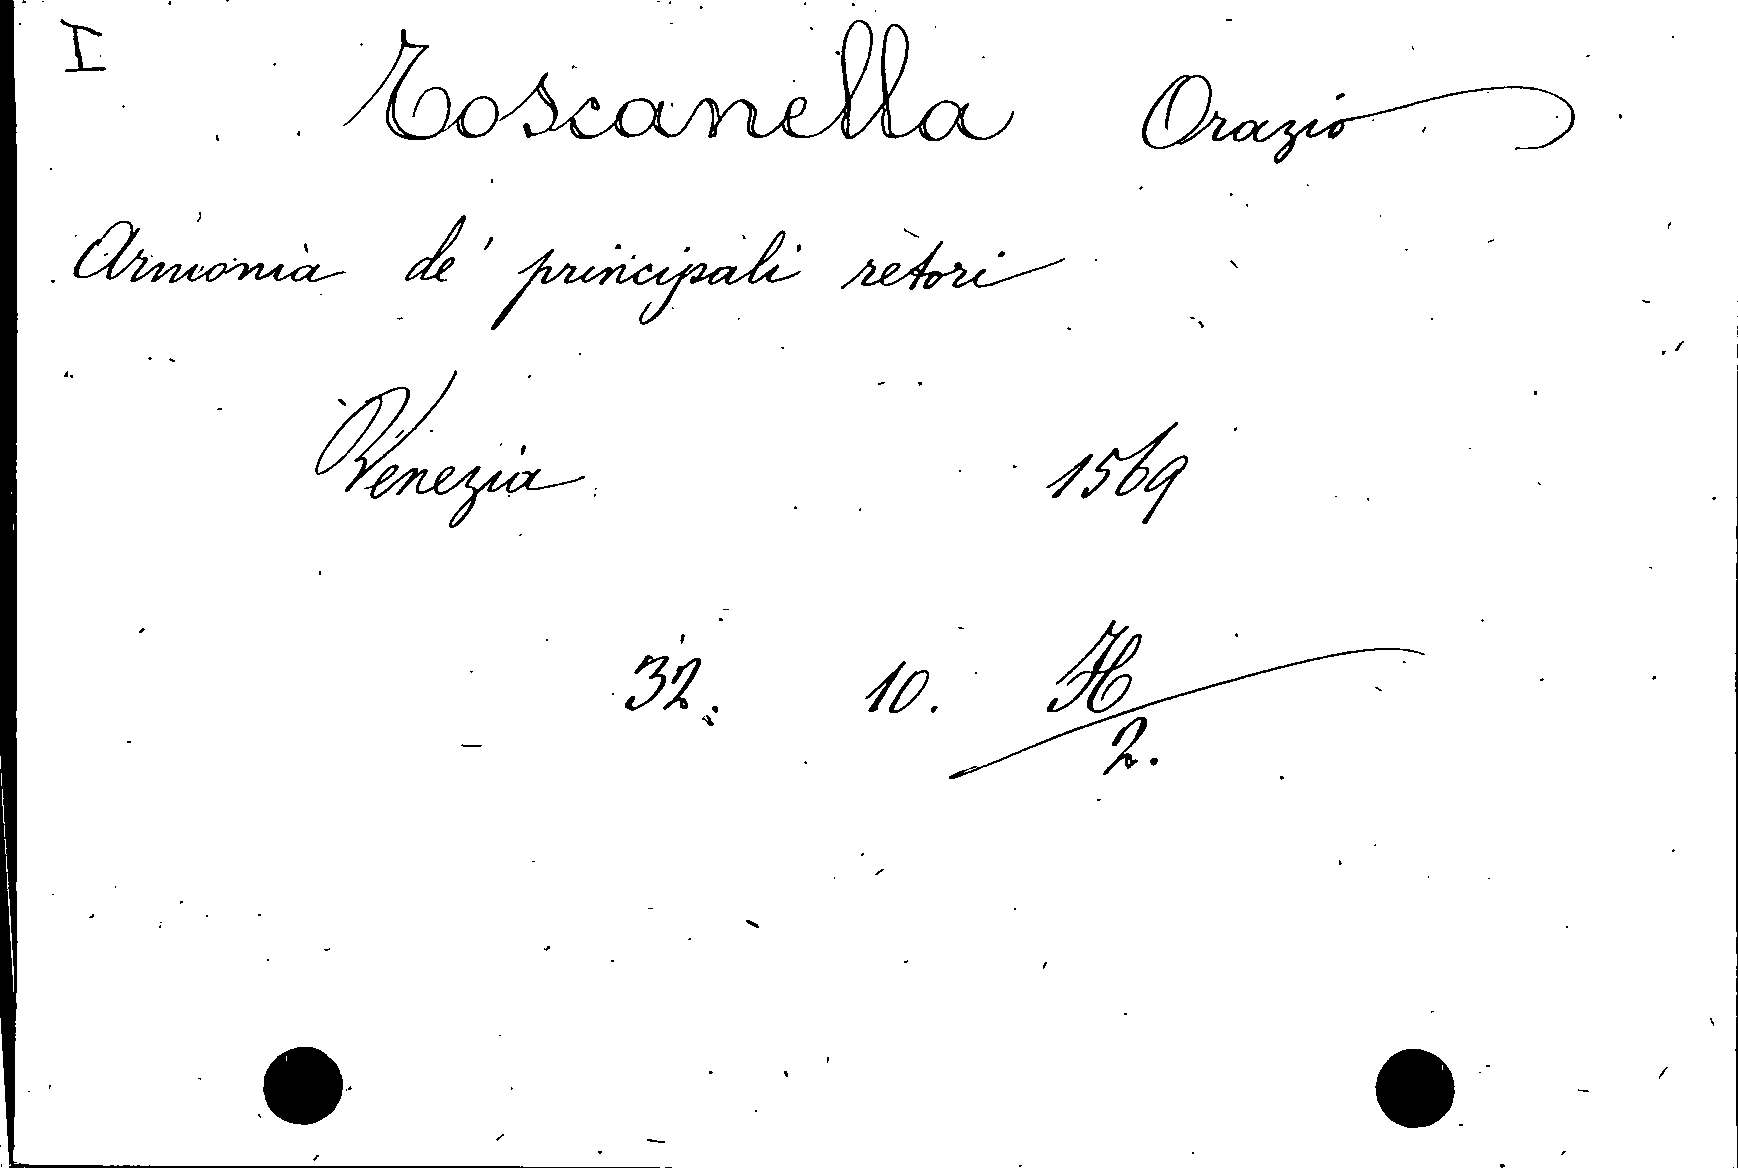 I
Toscanella Orazio
Armonia de' principali retori
Venezia 1569
32. 10. H
2.